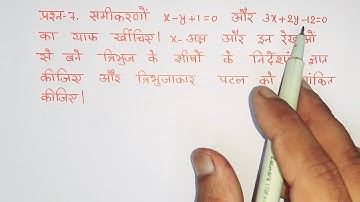 प्रश्न-7. समीकरणों x-y+1=0 और 3x+2y-12=0
का ग्राफ खींचिए। x-अक्ष और इन रेखाओं
से बने त्रिभुज के शीर्षों के निर्देशांक ज्ञात
कीजिए और त्रिभुजाकार पटल को
कीजिए।